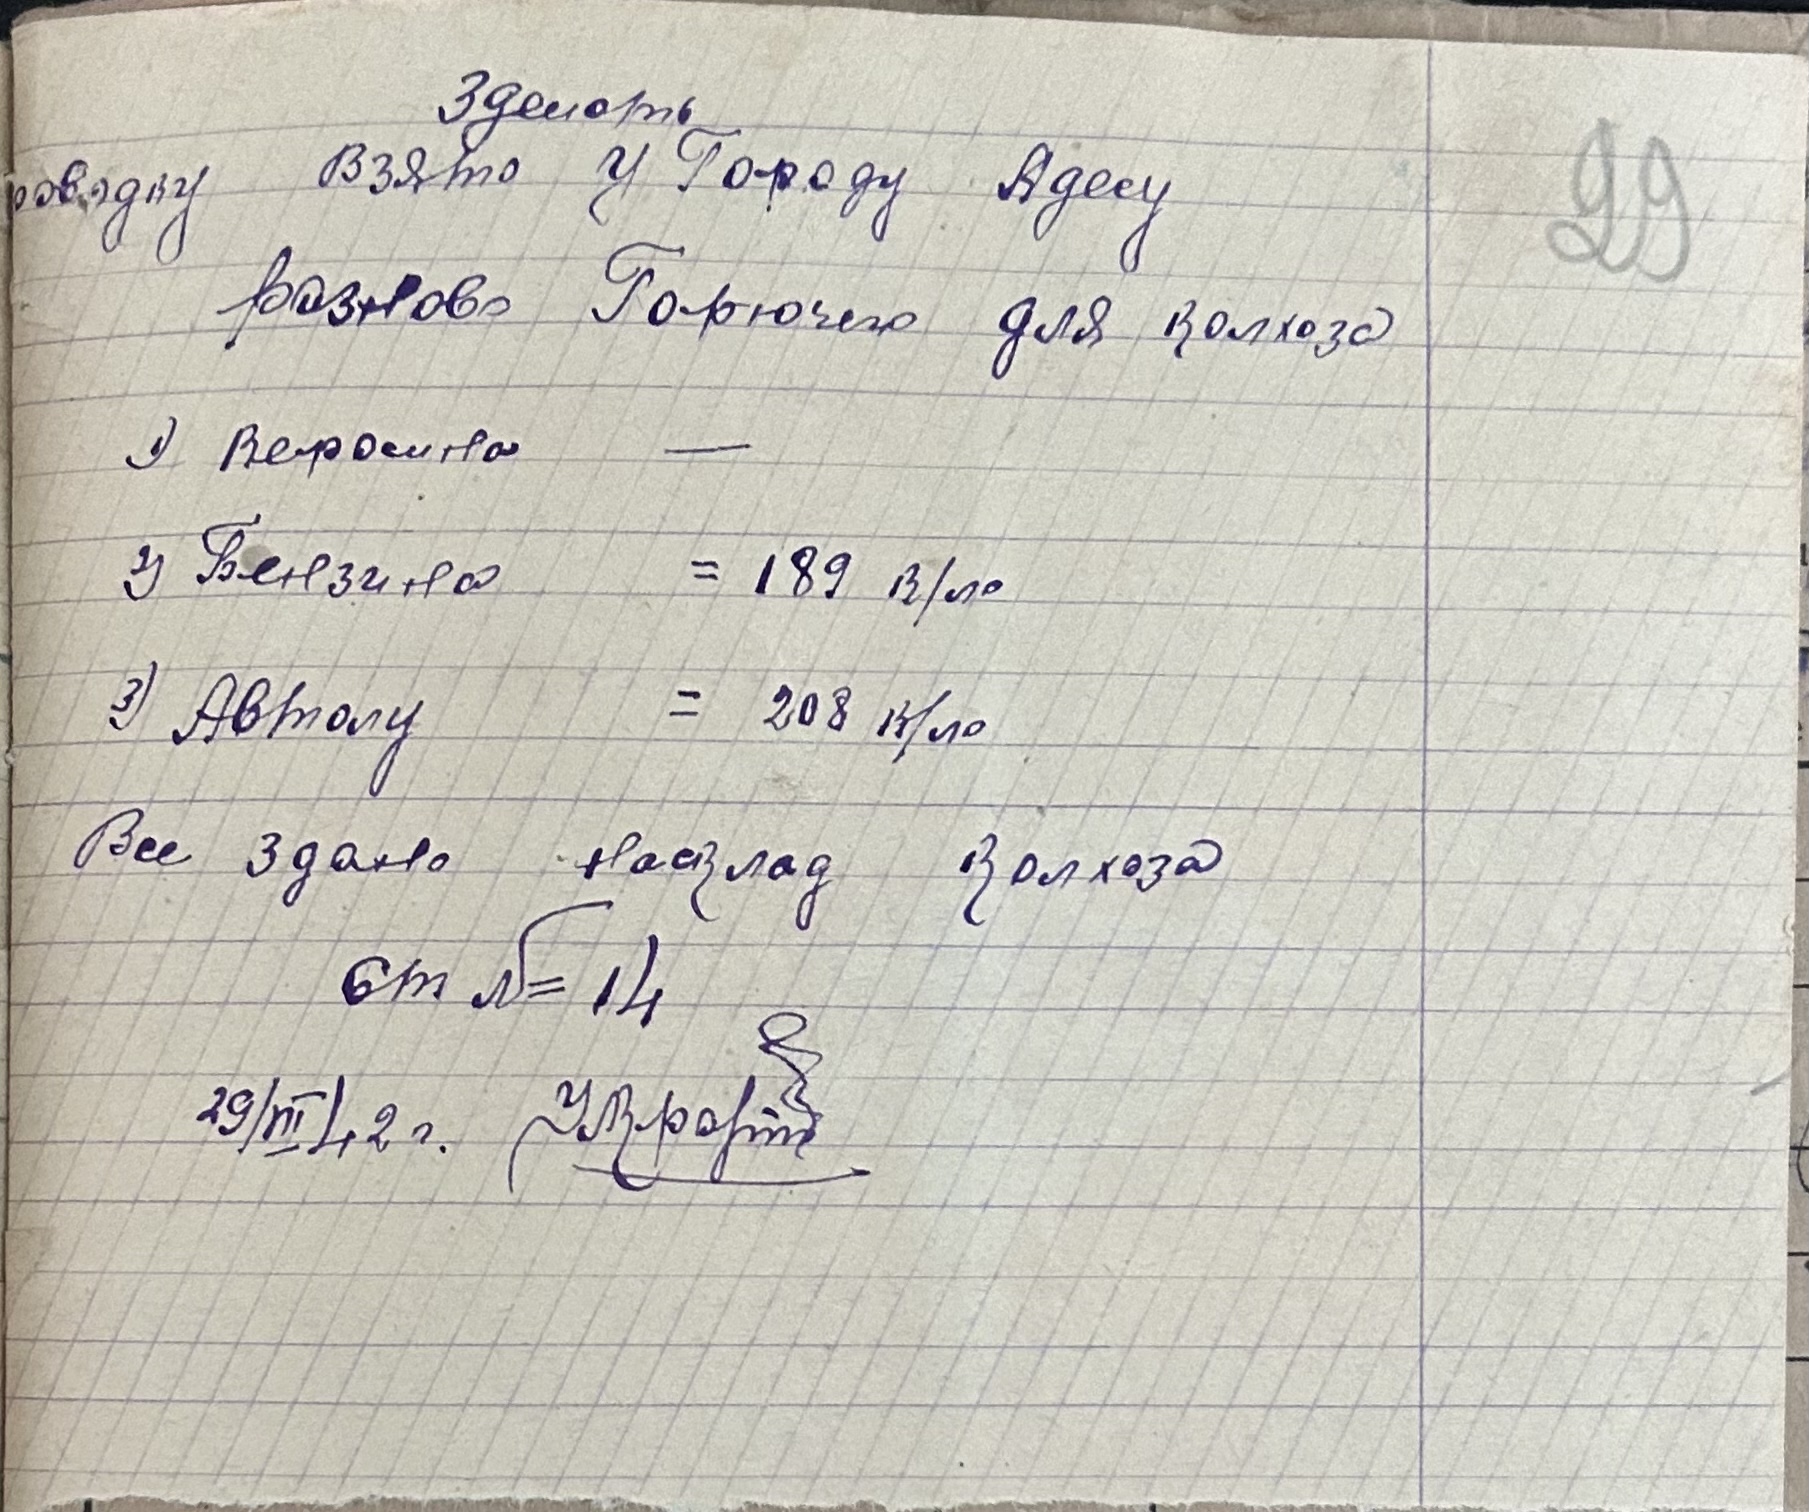 Зделать
ровадку Взято У Городу Адесу
разново Горючего для колхоза
1) Керосина —
2) Бензина = 189 к/ло
3) Автолу = 208 к/ло
Все здано насклад колхоза
Ст № = 14
29/III 42 г.
29